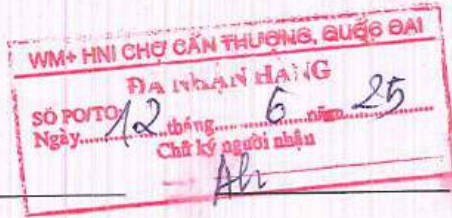 WM+ HNI CHỢ CẤN THƯỢNG, QUỐC OAI
ĐÃ NHẬN HÀNG
SỐ PO/TO
Ngày 12 tháng 6 năm 25
Chữ ký người nhận